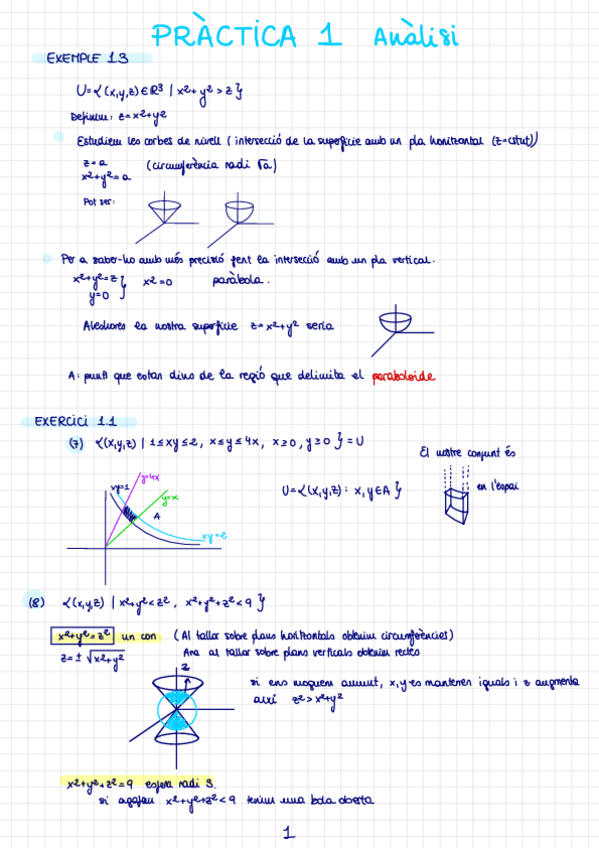 PRÀCTICA 1 Anàlisi
EXEMPLE 1.3
U={(x,y,z)∈ℝ³ | x²+y²>z}
Definim: z=x²+y²
Estudiem les corbes de nivell (intersecció de la superfície amb un pla horitzontal (z=cstnt))
z=a (circumferència radi √a)
x²+y²=a
Pot ser:
Per a saber-ho amb més precisió fent la intersecció amb un pla vertical.
x²+y²=z } x²=0 paràbola.
y=0
Aleshores la nostra superfície z=x²+y² seria
A: punts que estan dins de la regió que delimita el paraboloide
EXERCICI 1.1
(7) {(x,y,z) | 1≤xy≤2, x≤y≤4x, x≥0, y≥0} = U
El nostre conjunt és
y=4x
xy=1
y=x
U={(x,y,z): x,y∈A}
en l'espai
A
xy=2
(8) {(x,y,z) | x²+y²<z², x²+y²+z²<9}
x²+y²=z² un con (Al tallar sobre plans horitzontals obtenim circumferències)
z=±√x²+y² Ara al tallar sobre plans verticals obtenim rectes
z
si ens moguem amunt, x,y es mantenen iguals i z augmenta
així z²>x²+y²
x²+y²+z²=9 esfera radi 3.
si agafem x²+y²+z²<9 tenim una bola oberta
1